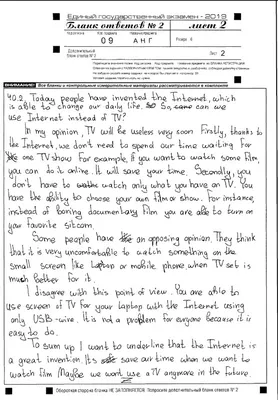 Единый государственный экзамен - 2019
Бланк ответов № 2
лист 2
09
АНГ
Лист 2
ВНИМАНИЕ! Все бланки и контрольные измерительные материалы рассматриваются в комплекте
40.2. Today people have invented the Internet, which
is able to change our daily life. So, can we
use Internet instead of TV?
In my opinion, TV will be useless very soon. Firstly, thanks to
the Internet, we don't need to spend our time waiting for
one TV show. For example, if you want to watch some film,
you can do it online. It will save your time. Secondly, you
don't have to watch only what you have on TV. You
have the ability to choose your own film or show. For instance,
instead of boring documentary film you are able to turn on
your favorite sitcom.
Some people have an opposing opinion. They think
that it is very uncomfortable to watch something on the
small screen like laptop or mobile phone when TV set is
much better for it.
I disagree with this point of view. You are able to
use screen of TV for your laptop with the Internet using
only USB-wire. It is not a problem for everyone because it is
easy to do.
To sum up I want to underline that the Internet is
a great invention. It save our time when we want to
watch film. Maybe we won't use a TV anymore in the future.
Оборотная сторона бланка НЕ ЗАПОЛНЯЕТСЯ. Попросите дополнительный бланк ответов № 2